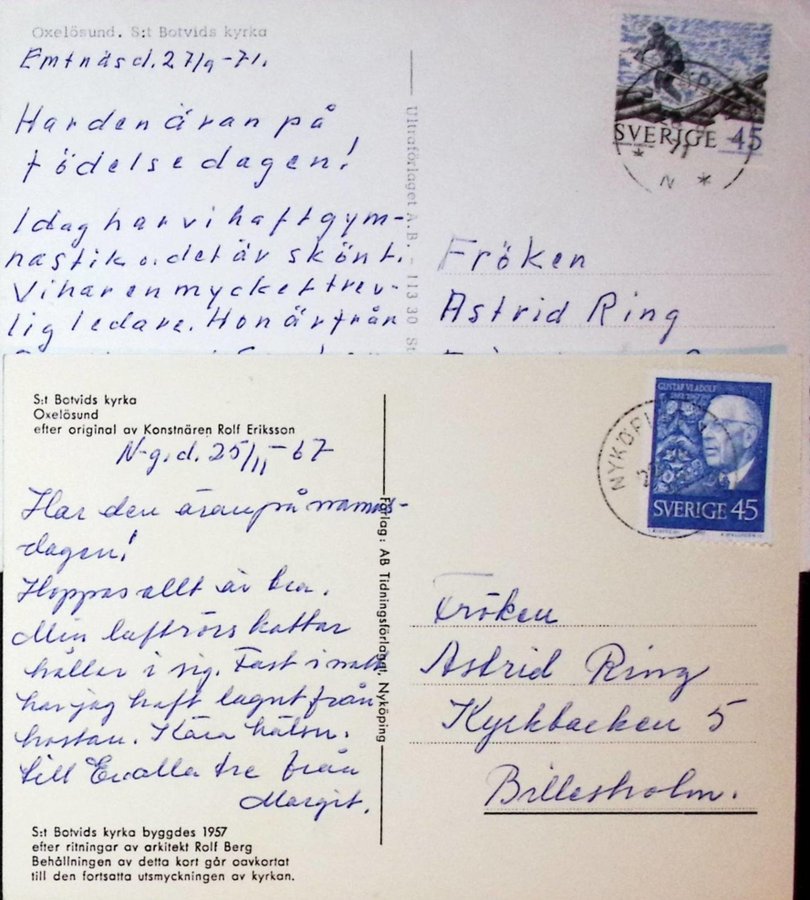 Oxelösund. S:t Botvids kyrka
Emtnäs d. 27/9 -71.
Har den äran på
födelsedagen!
Idag har vi haft gym-
nastik o. det är skönt.
Vi har en mycket trev-
lig ledare. Hon är från
Ultraförlaget A.B. - 113 30 St
SVERIGE 45
71
N
Fröken
Astrid Ring
S:t Botvids kyrka
Oxelösund
efter original av Konstnären Rolf Eriksson
N-g. d. 25/11 -67
Har den äran på namns-
dagen!
Hoppas allt är bra.
Min luftrörskattar
håller i sig. Fast i natt
har jag haft lugnt från
hostan. Kära hälsn.
till Er alla tre från
Margit.
S:t Botvids kyrka byggdes 1957
efter ritningar av arkitekt Rolf Berg
Behållningen av detta kort går oavkortat
till den fortsatta utsmyckningen av kyrkan.
Förlag: AB Tidningsförlaget, Nyköping
GUSTAF VI ADOLF
1882 1967
SVERIGE 45
NYKÖPI
Fröken
Astrid Ring
Kyrkbacken 5
Billesholm.